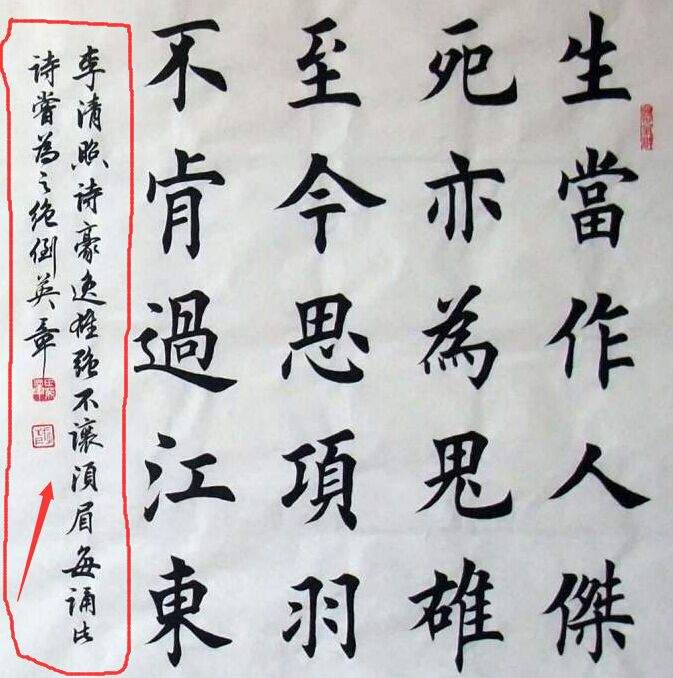 生當作人傑
死亦為鬼雄
至今思項羽
不肯過江東
李清照诗豪逸雄强不讓湏眉每诵此
诗嘗為之絶倒英章